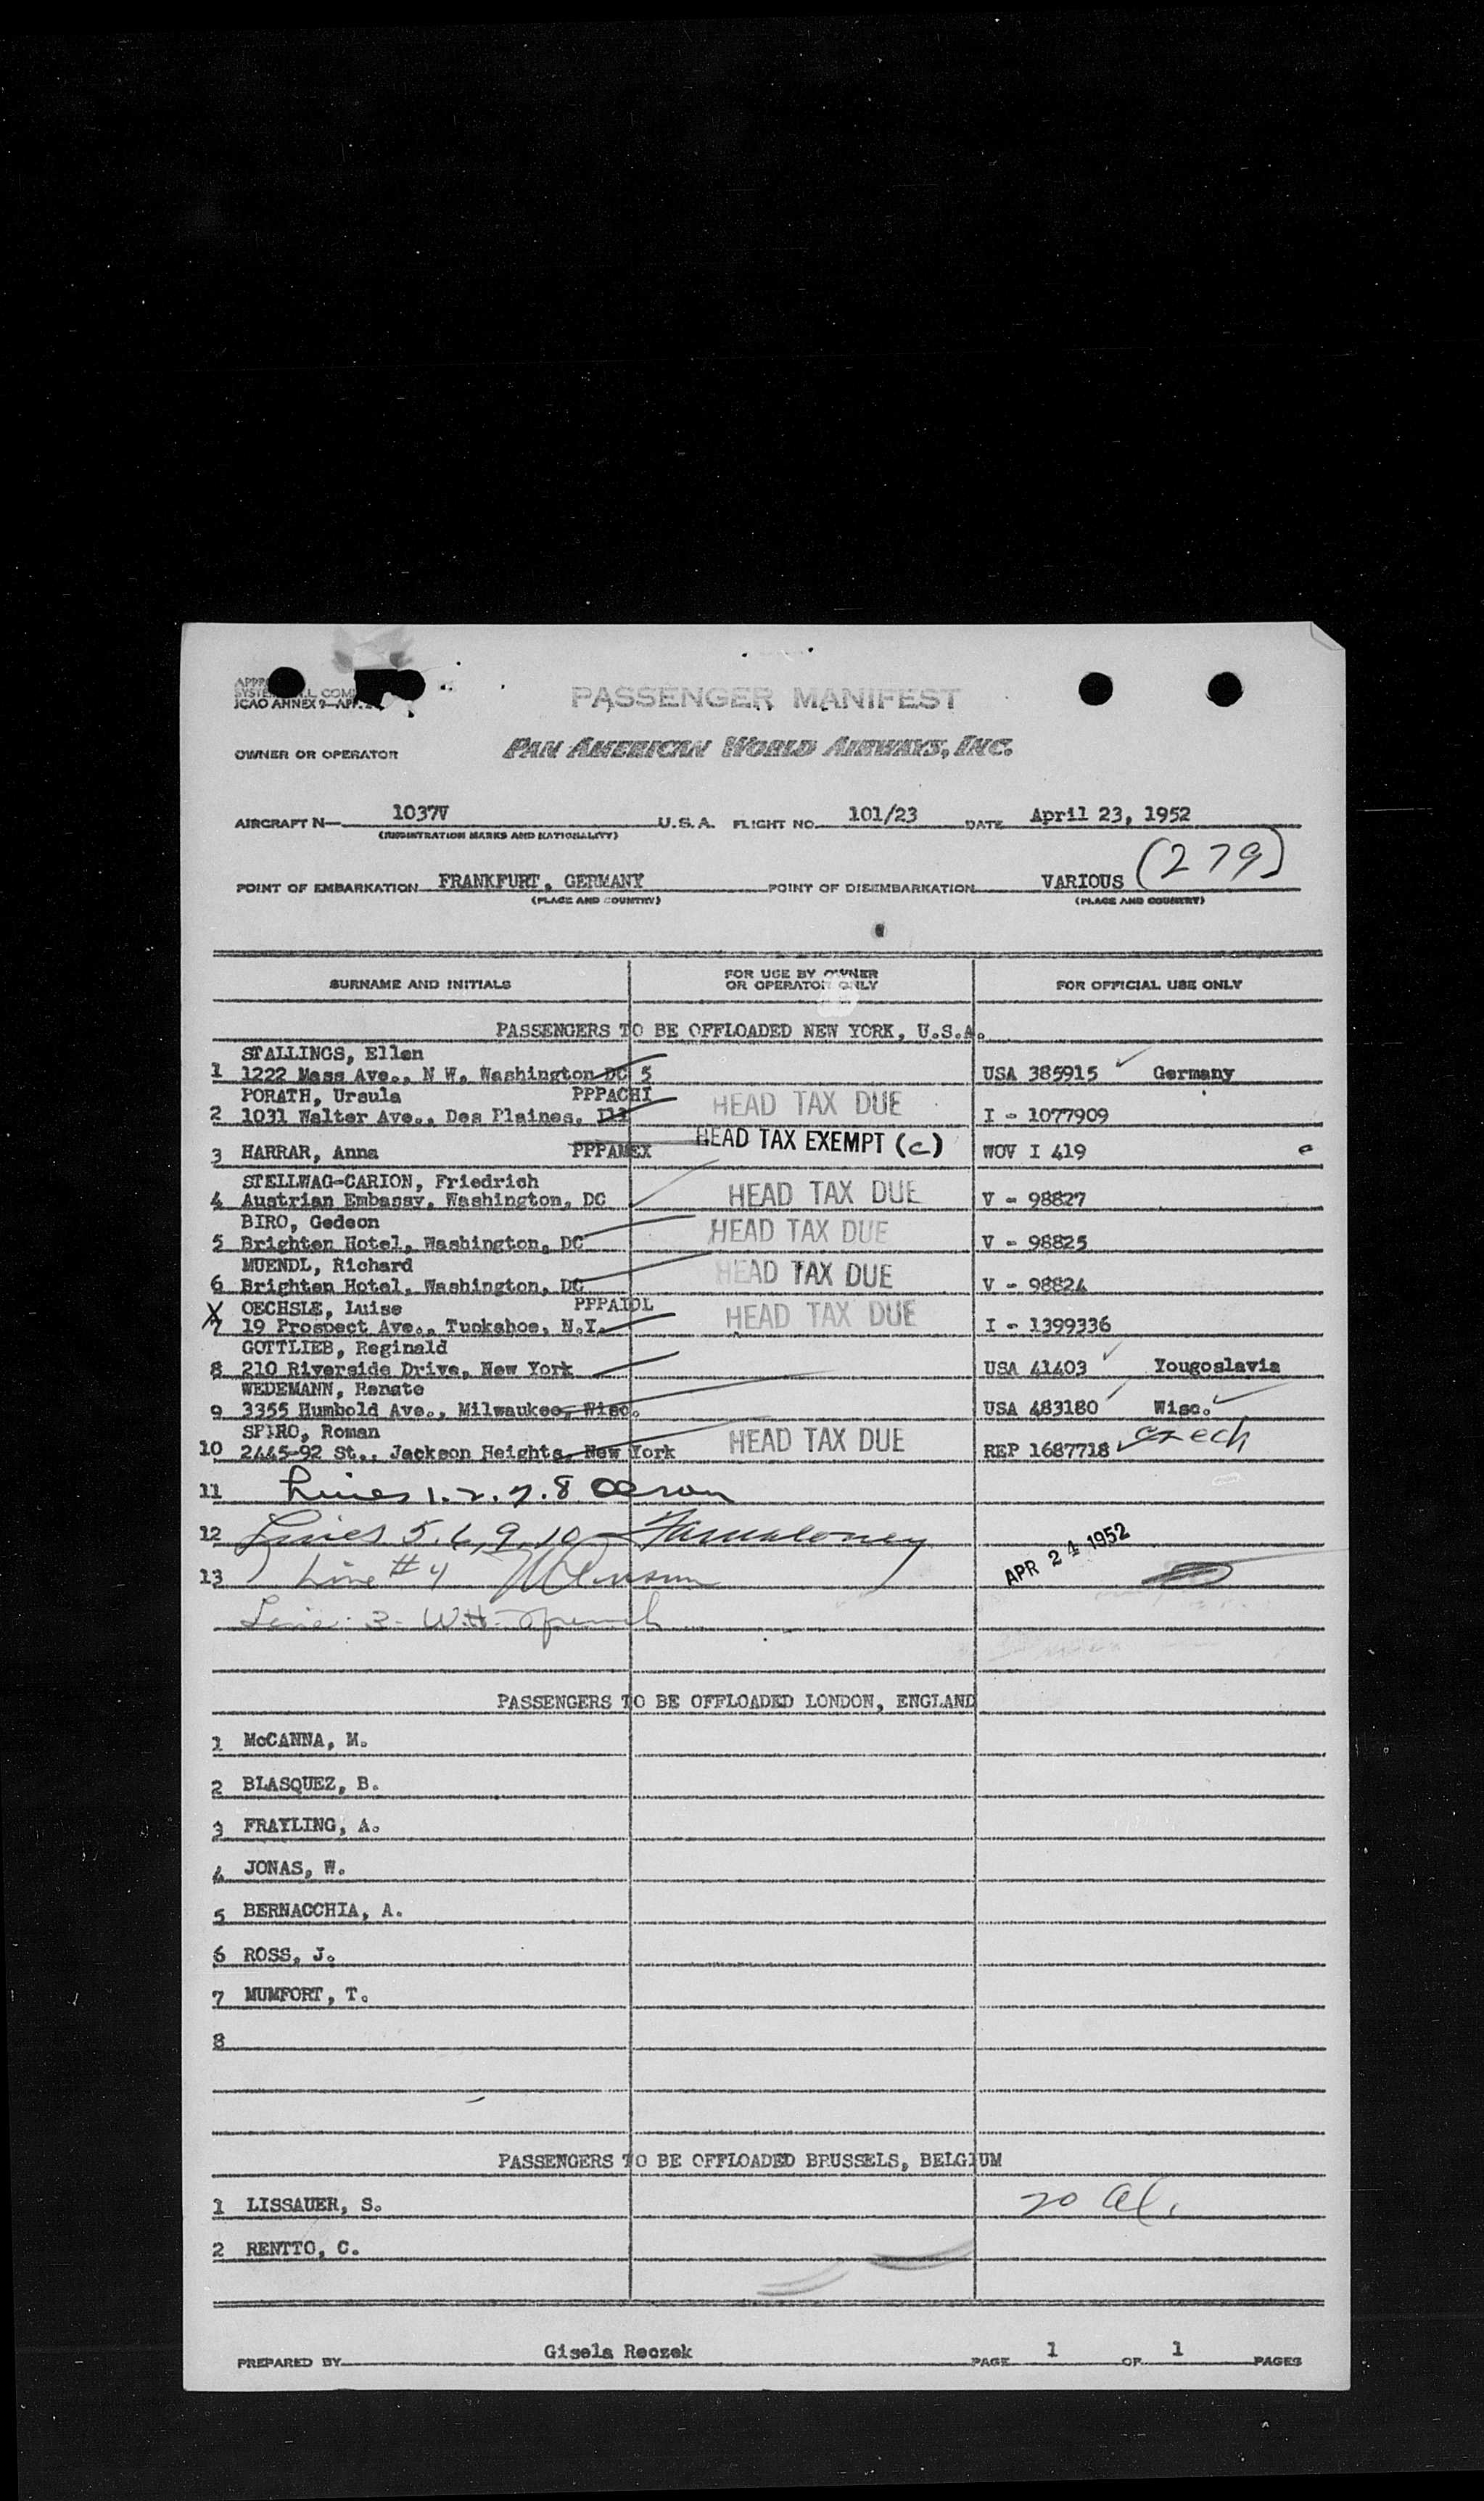 JCAO ANNEX 9-APP. 2
PASSENGER MANIFEST
OWNER OR OPERATOR PAN AMERICAN WORLD AIRWAYS, INC.
AIRCRAFT N- 1037V U.S.A. FLIGHT NO. 101/23 DATE April 23, 1952
(REGISTRATION MARKS AND NATIONALITY)
(279)
POINT OF EMBARKATION FRANKFURT, GERMANY POINT OF DISEMBARKATION VARIOUS
(PLACE AND COUNTRY) (PLACE AND COUNTRY)
SURNAME AND INITIALS FOR USE BY OWNER OR OPERATOR ONLY FOR OFFICIAL USE ONLY
PASSENGERS TO BE OFFLOADED NEW YORK, U.S.A.
STALLINGS, Ellen
1 1222 Mass Ave., N W, Washington DC 5 USA 385915 Germany
PORATH, Ursula PPPACHI
2 1031 Walter Ave., Des Plaines, Ill HEAD TAX DUE I - 1077909
3 HARRAR, Anna PPPAMEX HEAD TAX EXEMPT (c) WOV I 419
STELLWAG-CARION, Friedrich
4 Austrian Embassy, Washington, DC HEAD TAX DUE V - 98827
BIRO, Gedeon
5 Brighten Hotel, Washington, DC HEAD TAX DUE V - 98825
MUENDL, Richard
6 Brighten Hotel, Washington, DC HEAD TAX DUE V - 98824
X OECHSLE, Luise PPPAIDL
7 19 Prospect Ave., Tuckahoe, N.Y. HEAD TAX DUE I - 1399336
GOTTLIEB, Reginald
8 210 Riverside Drive, New York USA 41403 Yougoslavia
WEDEMANN, Renate
9 3355 Humbold Ave., Milwaukee, Wisc. USA 483180 Wisc.
SPIRO, Roman
10 2445-92 St., Jackson Heights, New York HEAD TAX DUE REP 1687718 Czech
11 Lines 1.2.7.8
12 Lines 5.6,9,10
13 Line #4 APR 24 1952
Line 3- W.H.
PASSENGERS TO BE OFFLOADED LONDON, ENGLAND
1 McCANNA, M.
2 BLASQUEZ, B.
3 FRAYLING, A.
4 JONAS, W.
5 BERNACCHIA, A.
6 ROSS, J.
7 MUMFORT, T.
8
PASSENGERS TO BE OFFLOADED BRUSSELS, BELGIUM
1 LISSAUER, S. 20 al.
2 RENTTO, C.
PREPARED BY Gisela Reczek PAGE 1 OF 1 PAGES